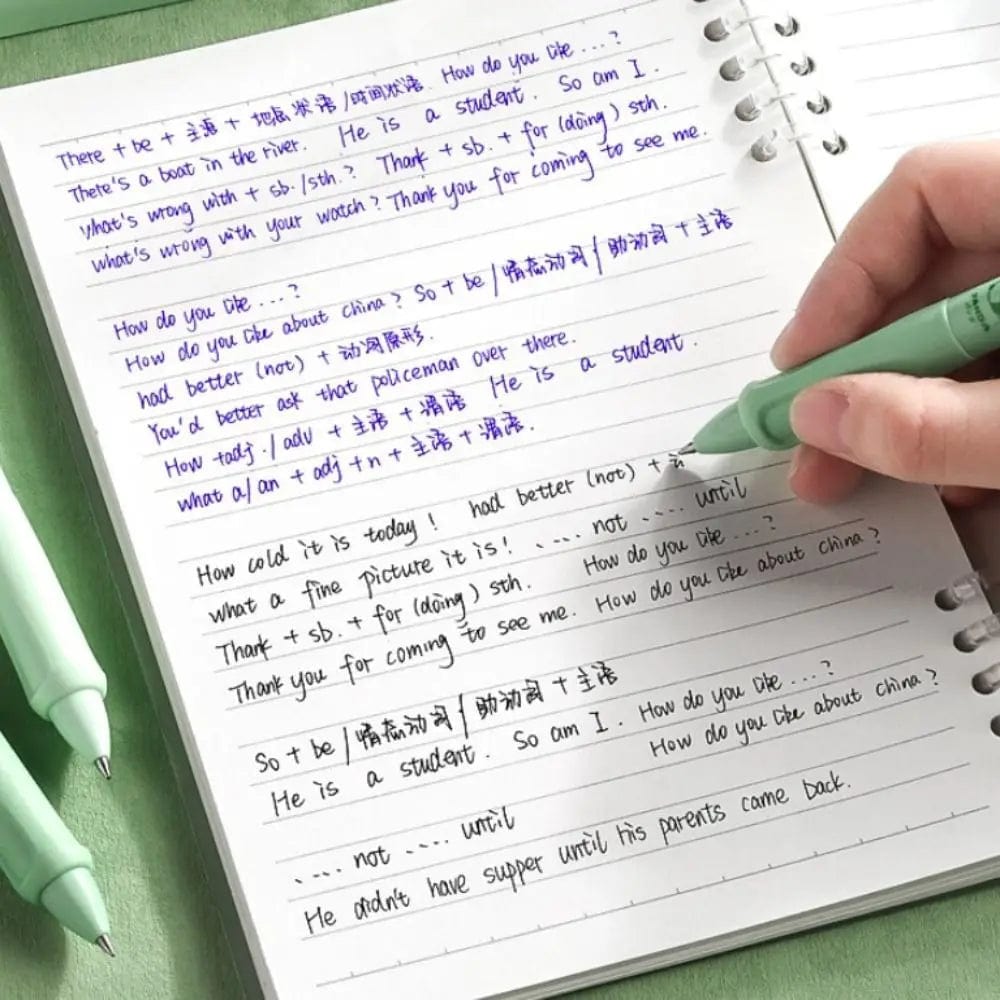 There + be + 主语 + 地点状语/时间状语. How do you like ...?
There's a boat in the river. He is a student. So am I.
What's wrong with + sb./sth.? Thank + sb. + for (doing) sth.
what's wrong with your watch? Thank you for coming to see me.
How do you like ...?
How do you like about china? So + be/情态动词/助动词 + 主语
had better (not) + 动词原形.
You'd better ask that policeman over there.
How +adj./adv + 主语 + 谓语 He is a student.
what a/an + adj +n + 主语 + 谓语.
How cold it is today! had better (not) +
what a fine picture it is! ..... not ..... until
Thank + sb. + for (doing) sth. How do you like ...?
Thank you for coming to see me. How do you like about china?
So + be/情态动词/助动词 + 主语
He is a student. So am I. How do you like ...?
How do you like about china?
..... not ..... until
He didn't have supper until his parents came back.